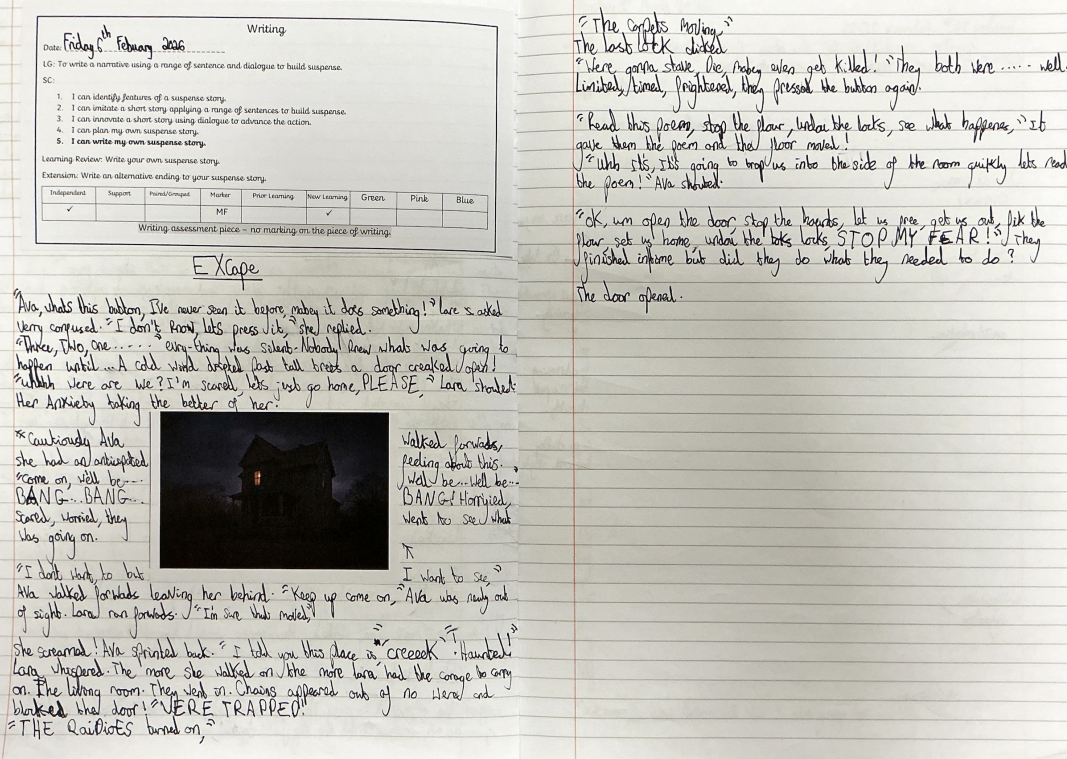 Writing
Date: Friday 6th Febuary 2026
LG: To write a narrative using a range of sentence and dialogue to build suspense.
SC:
1. I can identify features of a suspense story.
2. I can imitate a short story applying a range of sentences to build suspense.
3. I can innovate a short story using dialogue to advance the action.
4. I can plan my own suspense story.
5. I can write my own suspense story.
Learning Review: Write your own suspense story.
Extension: Write an alternative ending to your suspense story.
Independent Support Paired/Grouped Marker Prior Learning New Learning Green Pink Blue
✓ MF ✓
Writing assessment piece – no marking on the piece of writing.
EXcape
"Ava, whats this button, I've never seen it before, mabey it does something!" asked
verry confused. "I don't know, lets press it," she replied.
"Three, Two, one ....." evry-thing was silent. Nobody knew whats was going to
happen until... A cold wind past tall trees a door creaked open!
were are we? I'm scared, lets just go home, PLEASE," Lara shouted.
Her Anxieby taking the better of her.
Cautiously Ava walked forwads,
she had an anticapated feeling about this.
"Come on, we'll be---- Well be...Well be---"
BANG...BANG... BANG! Horryied,
Scared, worried, they went to see what
was going on.
"I don't want, to but I want to see,"
Ava walked forwads leaving her behind. "Keep up come on," Ava was out
of sight. Lara ran forwads. "I'm sure that moved,"
She screamed! Ava sprinted back. "I told you this place is "creeeek" Haunted!"
Lara whispered. The more she walked on the more lara had the corage to carry
on. The living room. They went in. Chains appeared out of no were and
blocked the door! "WERE TRAPPED!"
"THE RaiDioES turned on,"
"The carpets moving,"
The last lock clicked
"Were gonna stave, Die, mabey even get killed!" They both were ..... well.
Limited, timed, frightened, they pressed the button again.
"Read this poem, stop the flour, undou the locks, see what happenes," It
gave them the poem and the floor moved!
"Uhh it's, It's going to trop us into the side of the room quikly lets read
the poem!" Ava shouted.
"OK, um open the door, stop the let us free, get us out, fix the
flour, set us home, undou the locks STOP MY FEAR!" They
finished intime but did they do what they needed to do?
The door opened.